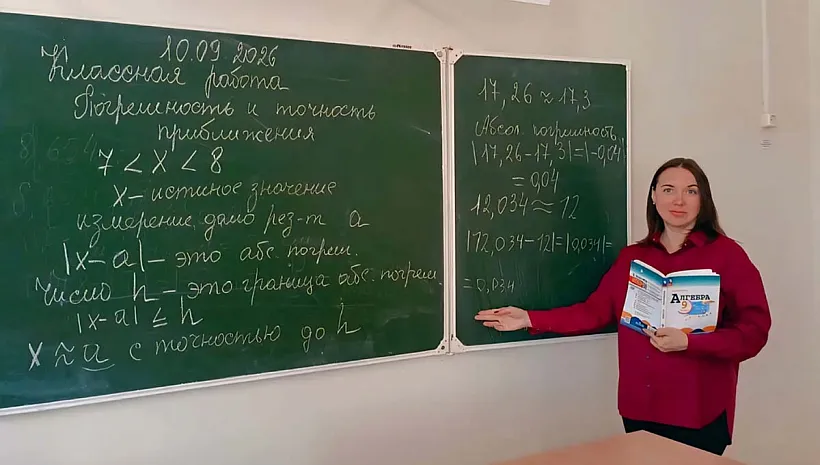 10.09.2026
Классная работа
Погрешность и точность
приближения
7 < x < 8
x - истиное значение
измерение дало рез-т a
|x - a| - это абс. погреш.
число h - это граница абс. погреш.
|x - a| ≤ h
x ≈ a с точностью до h
17,26 ≈ 17,3
Абсол. погрешность
|17,26 - 17,3| = |-0,04|
= 0,04
12,034 ≈ 12
|12,034 - 12| = |0,034| =
= 0,034
АЛГЕБРА
9